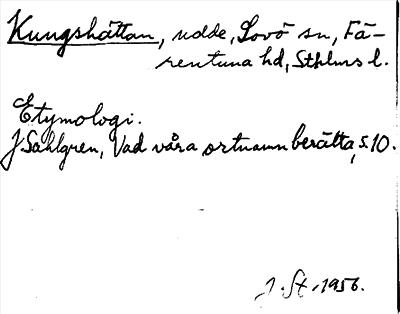 Kungshättan, udde, Lovö sn, Fä-
rentuna hd, Sthlms l.
Etymologi.
J. Sahlgren, Vad våra ortnamn berätta, s. 10.
J. St. 1956.